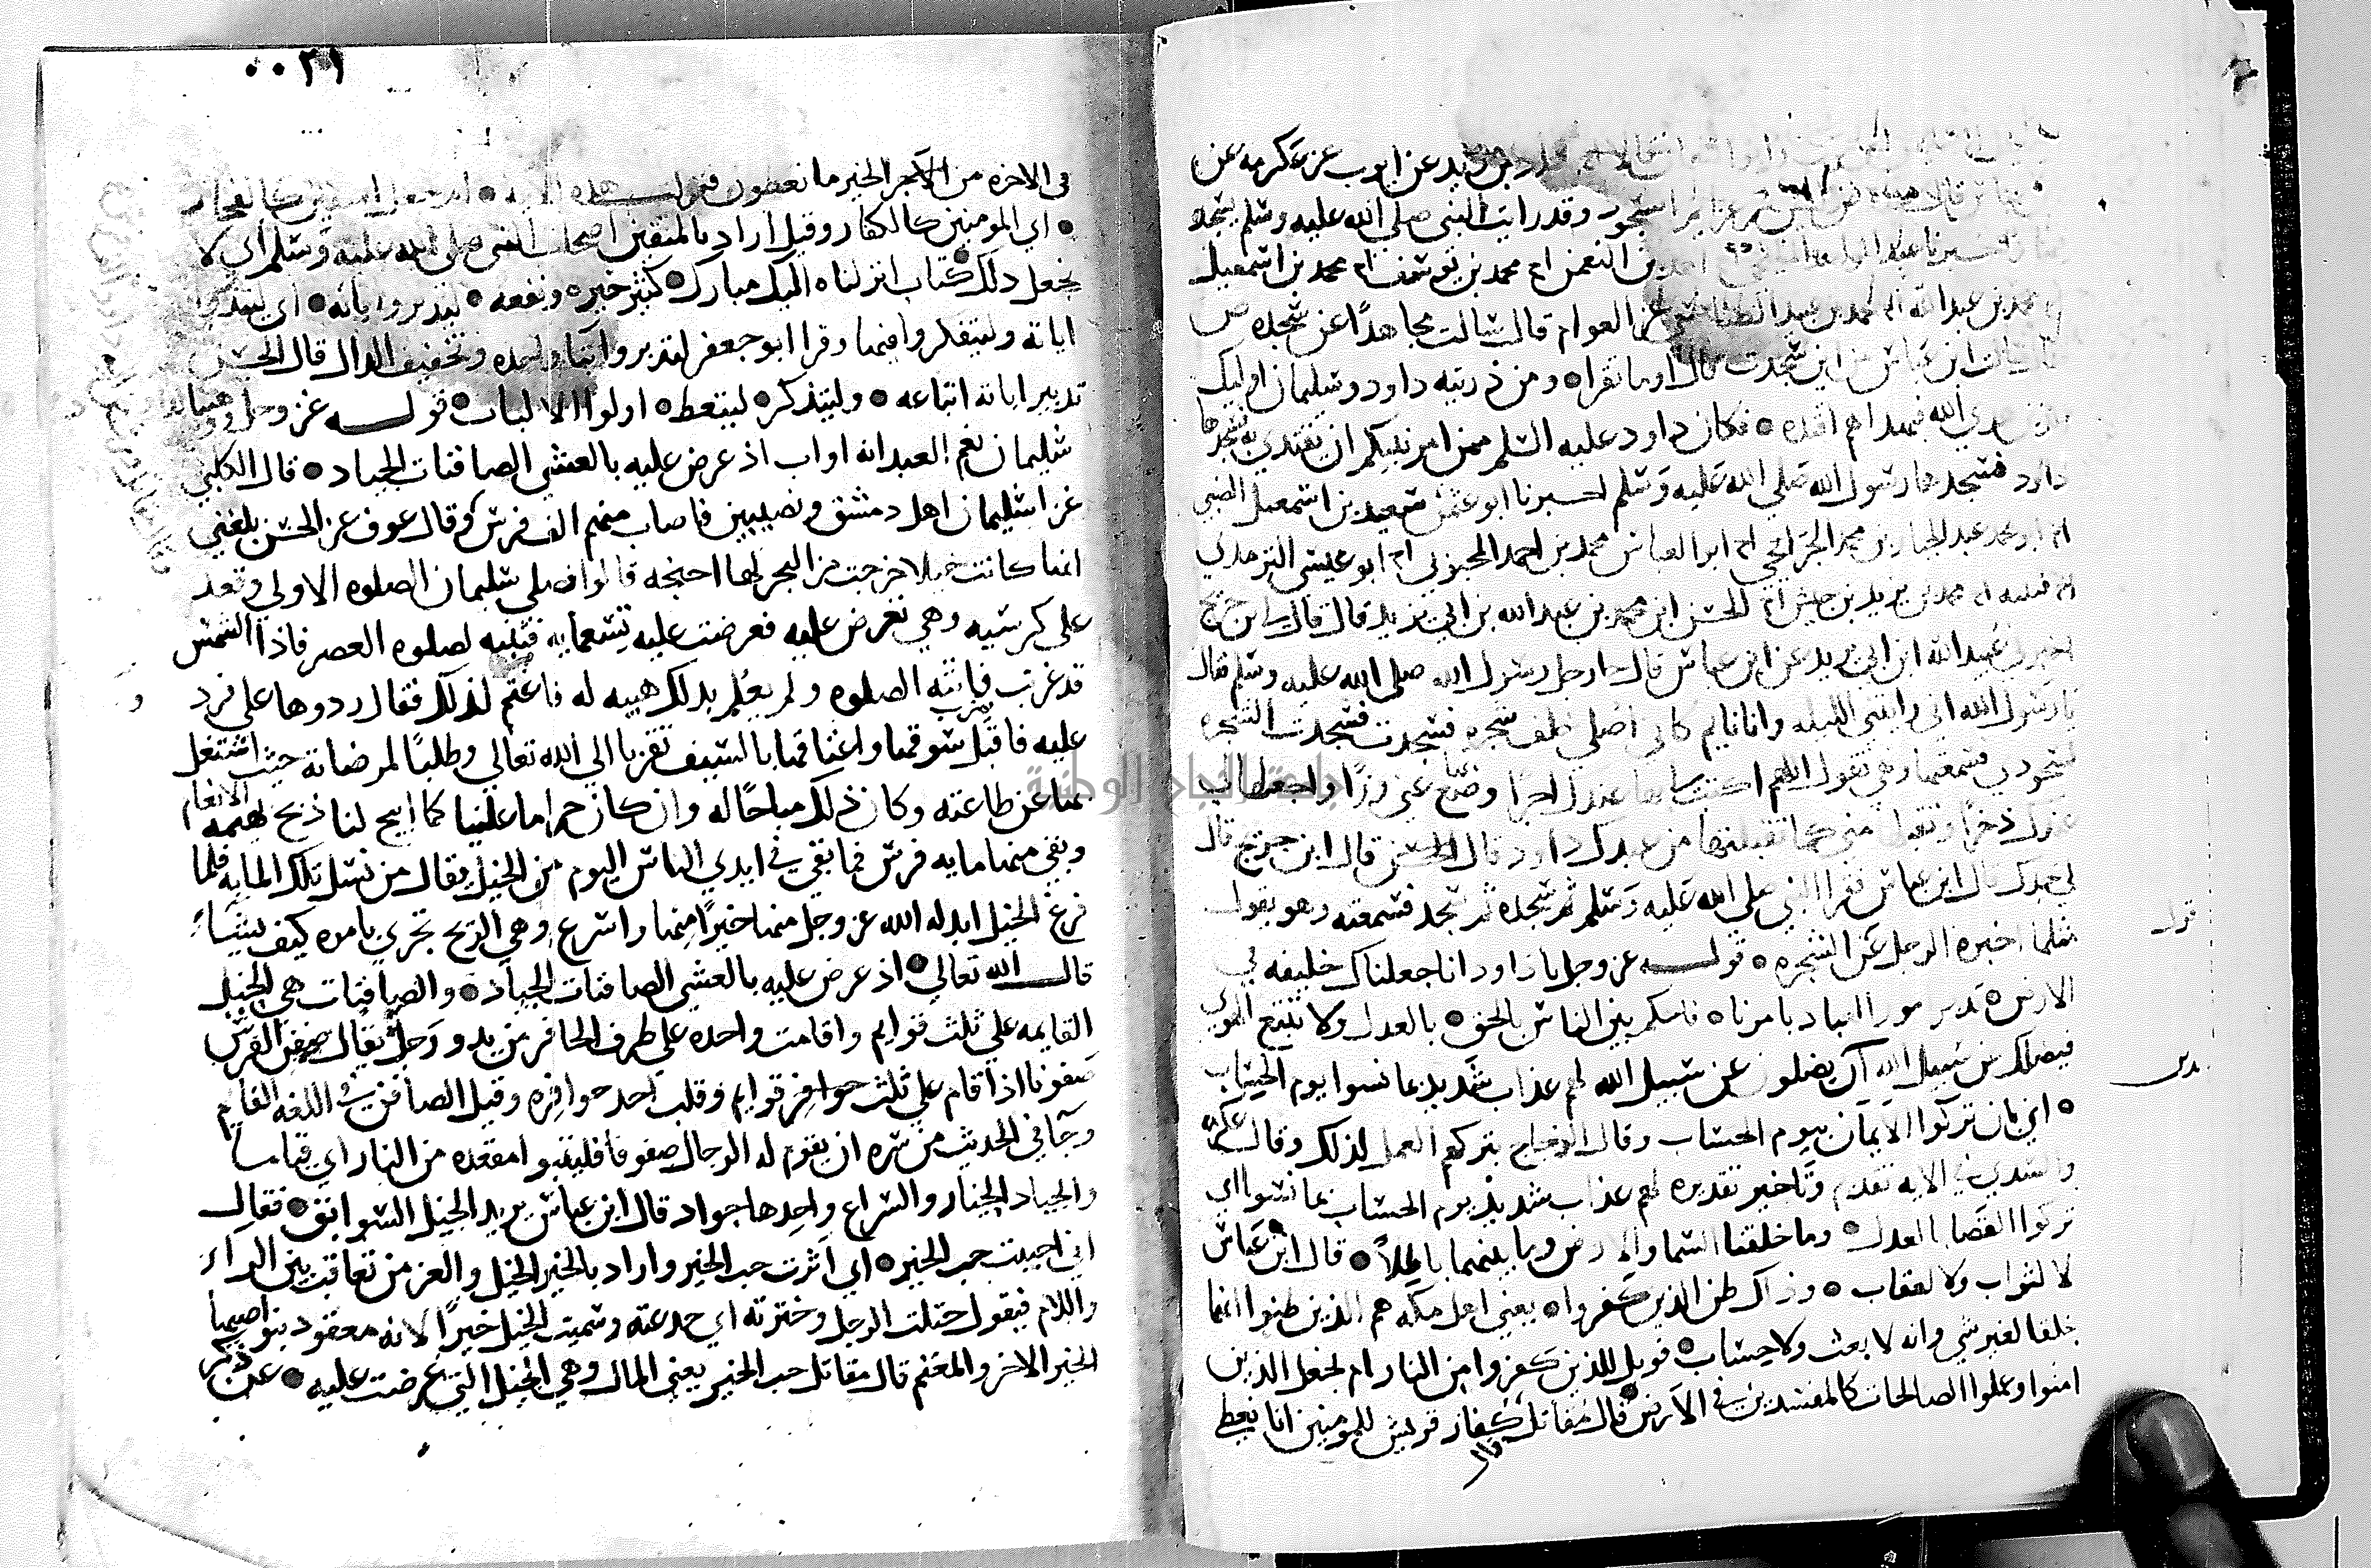 حماد بن زيد عن ايوب عن عكرمه عن
السجود وقد رايت النبي صلى الله عليه وسلم يسجد
بن النعمن انا محمد بن يوسف انا محمد بن اسمعيل
محمد بن عبد الله انا محمد بن عبيد الطنافسي عن العوام قال سالت مجاهدا عن سجده ص
ابن عباس من اين سجدت قال اوما تقراه ومن ذريته داود وسليمان اوليك
هدي الله فبهداهم اقتده فكان داود عليه السلم ممن امر نبيكم ان يقتدي به فسجدها
داود فسجدها رسول الله صلى الله عليه وسلم اخبرنا ابو عثمن سعيد بن اسمعيل الضبي
انا ابو محمد عبد الجبار بن محمد الجراحي انا ابو العباس محمد بن احمد المحبوبي انا ابو عيسى الترمذي
انا قتيبه انا محمد بن يزيد بن خنيس انا الحسن ابن محمد بن عبد الله بن ابي يزيد قال قال لي ابن جريج
اخبرني عبيد الله ابن ابي يزيد عن ابن عباس قال جا رجل رسول الله صلى الله عليه وسلم فقال
يا رسول الله اني رايتني الليله وانا نايم كاني اصلي خلف شجره فسجدت فسجدت الشجره
لسجودي فسمعتها وهي تقول اللهم اكتب لي بها عندك اجرا وضع عني وزرا واجعلها لي
عندك ذخرا وتقبلها مني كما تقبلتها من عبدك داود قال الحسن قال ابن جريج قال
لي جدك قال ابن عباس فقرا النبي صلى الله عليه وسلم سجده ثم سجد فسمعته وهو يقول
مثلما اخبره الرجل عن الشجره قوله عز وجل يا داود انا جعلناك خليفه في
الارض تدبر امور العباد بامرنا فاحكم بين الناس بالحق بالعدل ولا تتبع الهوى
فيضلك عن سبيل الله ان يضلون عن سبيل الله لهم عذاب شديد بما نسوا يوم الحساب
اي بان تركوا الايمان بيوم الحساب وقال الزجاج بتركهم العمل لذلك وقال عكرمه
والسدي في الايه تقديم وتاخير تقديره لهم عذاب شديد يوم الحساب بما نسوا اي
تركوا القضا بالعدل وما خلقنا السما والارض وما بينهما باطلا قال ابن عباس
لا لثواب ولا لعقاب وذلك ظن الذين كفروا يعني اهل مكه هم الذين ظنوا انما
خلقا لغير شي وانه لا بعث ولا حساب فويل للذين كفروا من النار ام نجعل الذين
امنوا وعملوا الصالحات كالمفسدين في الارض قال مقاتل كفار قريش للمومنين انا نعطى
قول
٠٠٢١
في الاخره من الاجر الخير ما تعطون فنزلت هذه الايه ام نجعل المتقين كالفجار
اي المومنين كالكفار وقيل اراد بالمتقين اصحاب النبي صلى الله عليه وسلم اي لا
نجعل ذلك كتاب انزلناه اليك مبارك كثير خيره ونفعه ليدبروا اياته اي ليتدبروا
اياته وليتفكروا فيها وقرا ابو جعفر لتدبروا بتا واحده وتخفيف الدال قال الحسن
تدبير اياته اتباعه وليتذكر ليتعظ اولوا الالباب قوله عز وجل ووهبنا لداود
سليمان نعم العبد انه اواب اذ عرض عليه بالعشي الصافنات الجياد قال الكلبي
غزا سليمان اهل دمشق ونصيبين فاصاب منهم الف فرس وقال عوف عن الحسن بلغني
انها كانت خيلا خرجت من البحر لها اجنحه قالوا فصلى سليمان الصلوه الاولى وقعد
على كرسيه وهي تعرض عليه فعرضت عليه تسعمايه فتنبه لصلوه العصر فاذا الشمس
قد غربت وفاتته الصلوه ولم يعلم بذلك هيبه له فاغتم لذلك فقال ردوها علي فرد
عليه فاقبل يضرب سوقها واعناقها بالسيف تقربا الى الله تعالى وطلبا لمرضاته حيث اشتغل
بها عن طاعته وكان ذلك مباحا له وان كان حراما علينا كما ابيح لنا ذبح بهيمه الانعام
وبقي منها مايه فرس فما بقي في ايدي الناس اليوم من الخيل يقال من نسل تلك المايه فلما
فرغ الخيل ابدله الله عز وجل منها خيرا منها واسرع وهي الريح تجري بامره كيف يشاء
قال الله تعالى اذ عرض عليه بالعشي الصافنات الجياد والصافنات هي الخيل
القايمه على ثلث قوايم واقامت واحده على طرف الحافر من يد ورجل يقال صفن الفرس
صفونا اذا قام على ثلث حوافر قوايم وقلب احد حوافره وقيل الصافن في اللغه القايم
وجا في الحديث من سره ان يقوم له الرجال صفوفا فليتبوا مقعده من النار اي قياما
والجياد الخيار والسراع واحدها جواد قال ابن عباس يريد الخيل السوابق فقال
اني احببت حب الخير اي اثرت حب الخير واراد بالخير الخيل والعرب تعاقب بين الراء
واللام فيقول ختلت الرجل وخترته اي خدعته وسميت الخيل خيرا لانه معقود بنواصيها
الخير الاخر والمغنم قال مقاتل حب الخير يعني المال وهي الخيل التي عرضت عليه عن ذكر
جامعة النجاح الوطنية